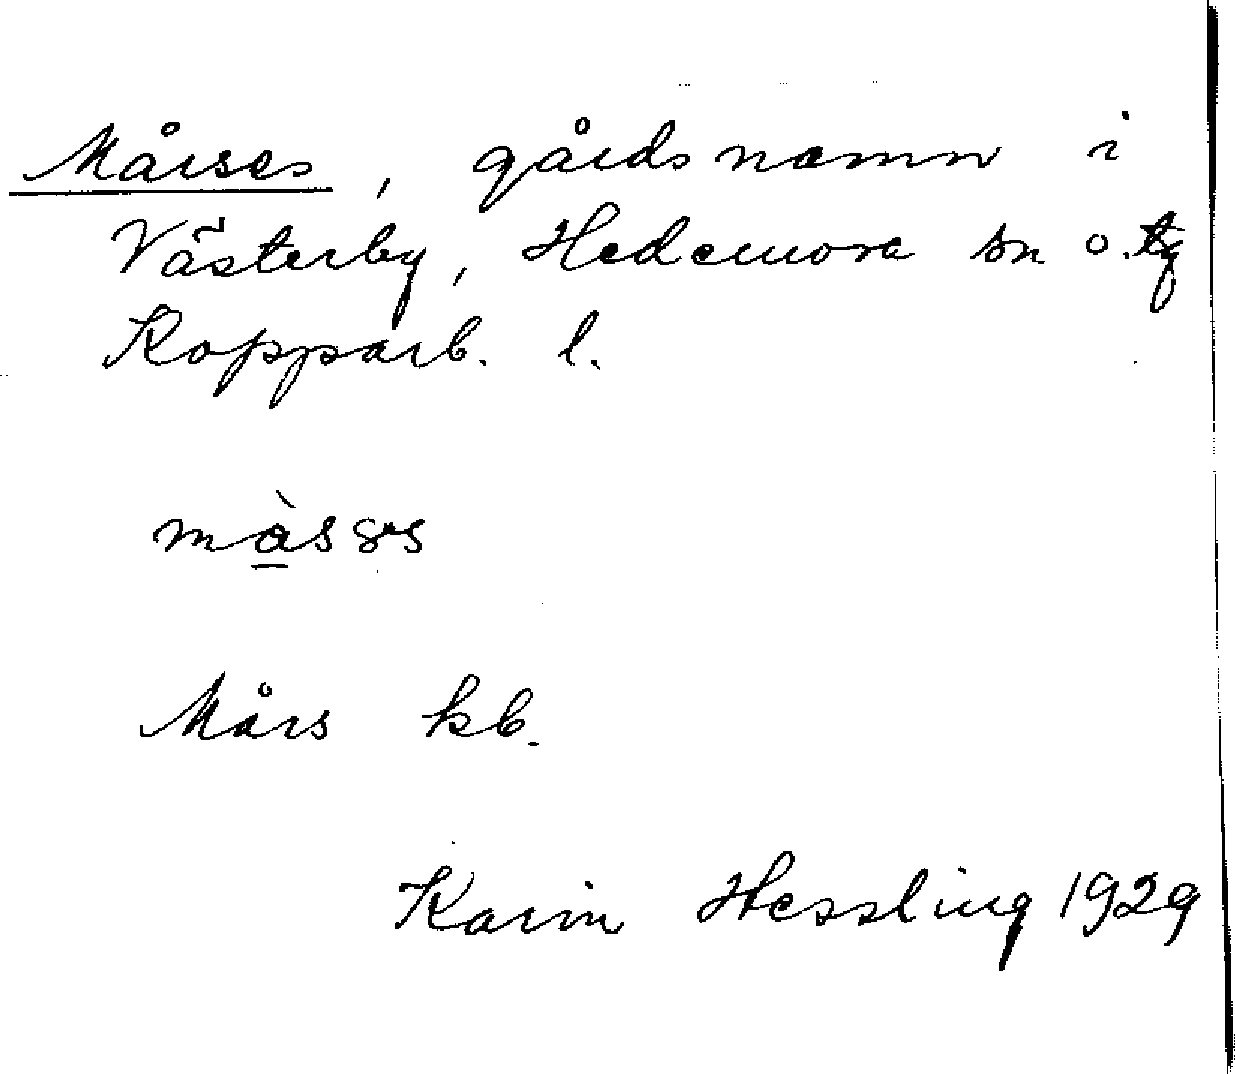 Mårses, gårdsnamn i
Västerby, Hedemora sn o. tg
Kopparb. l.
Mårs kb.
Karin Hessling 1929